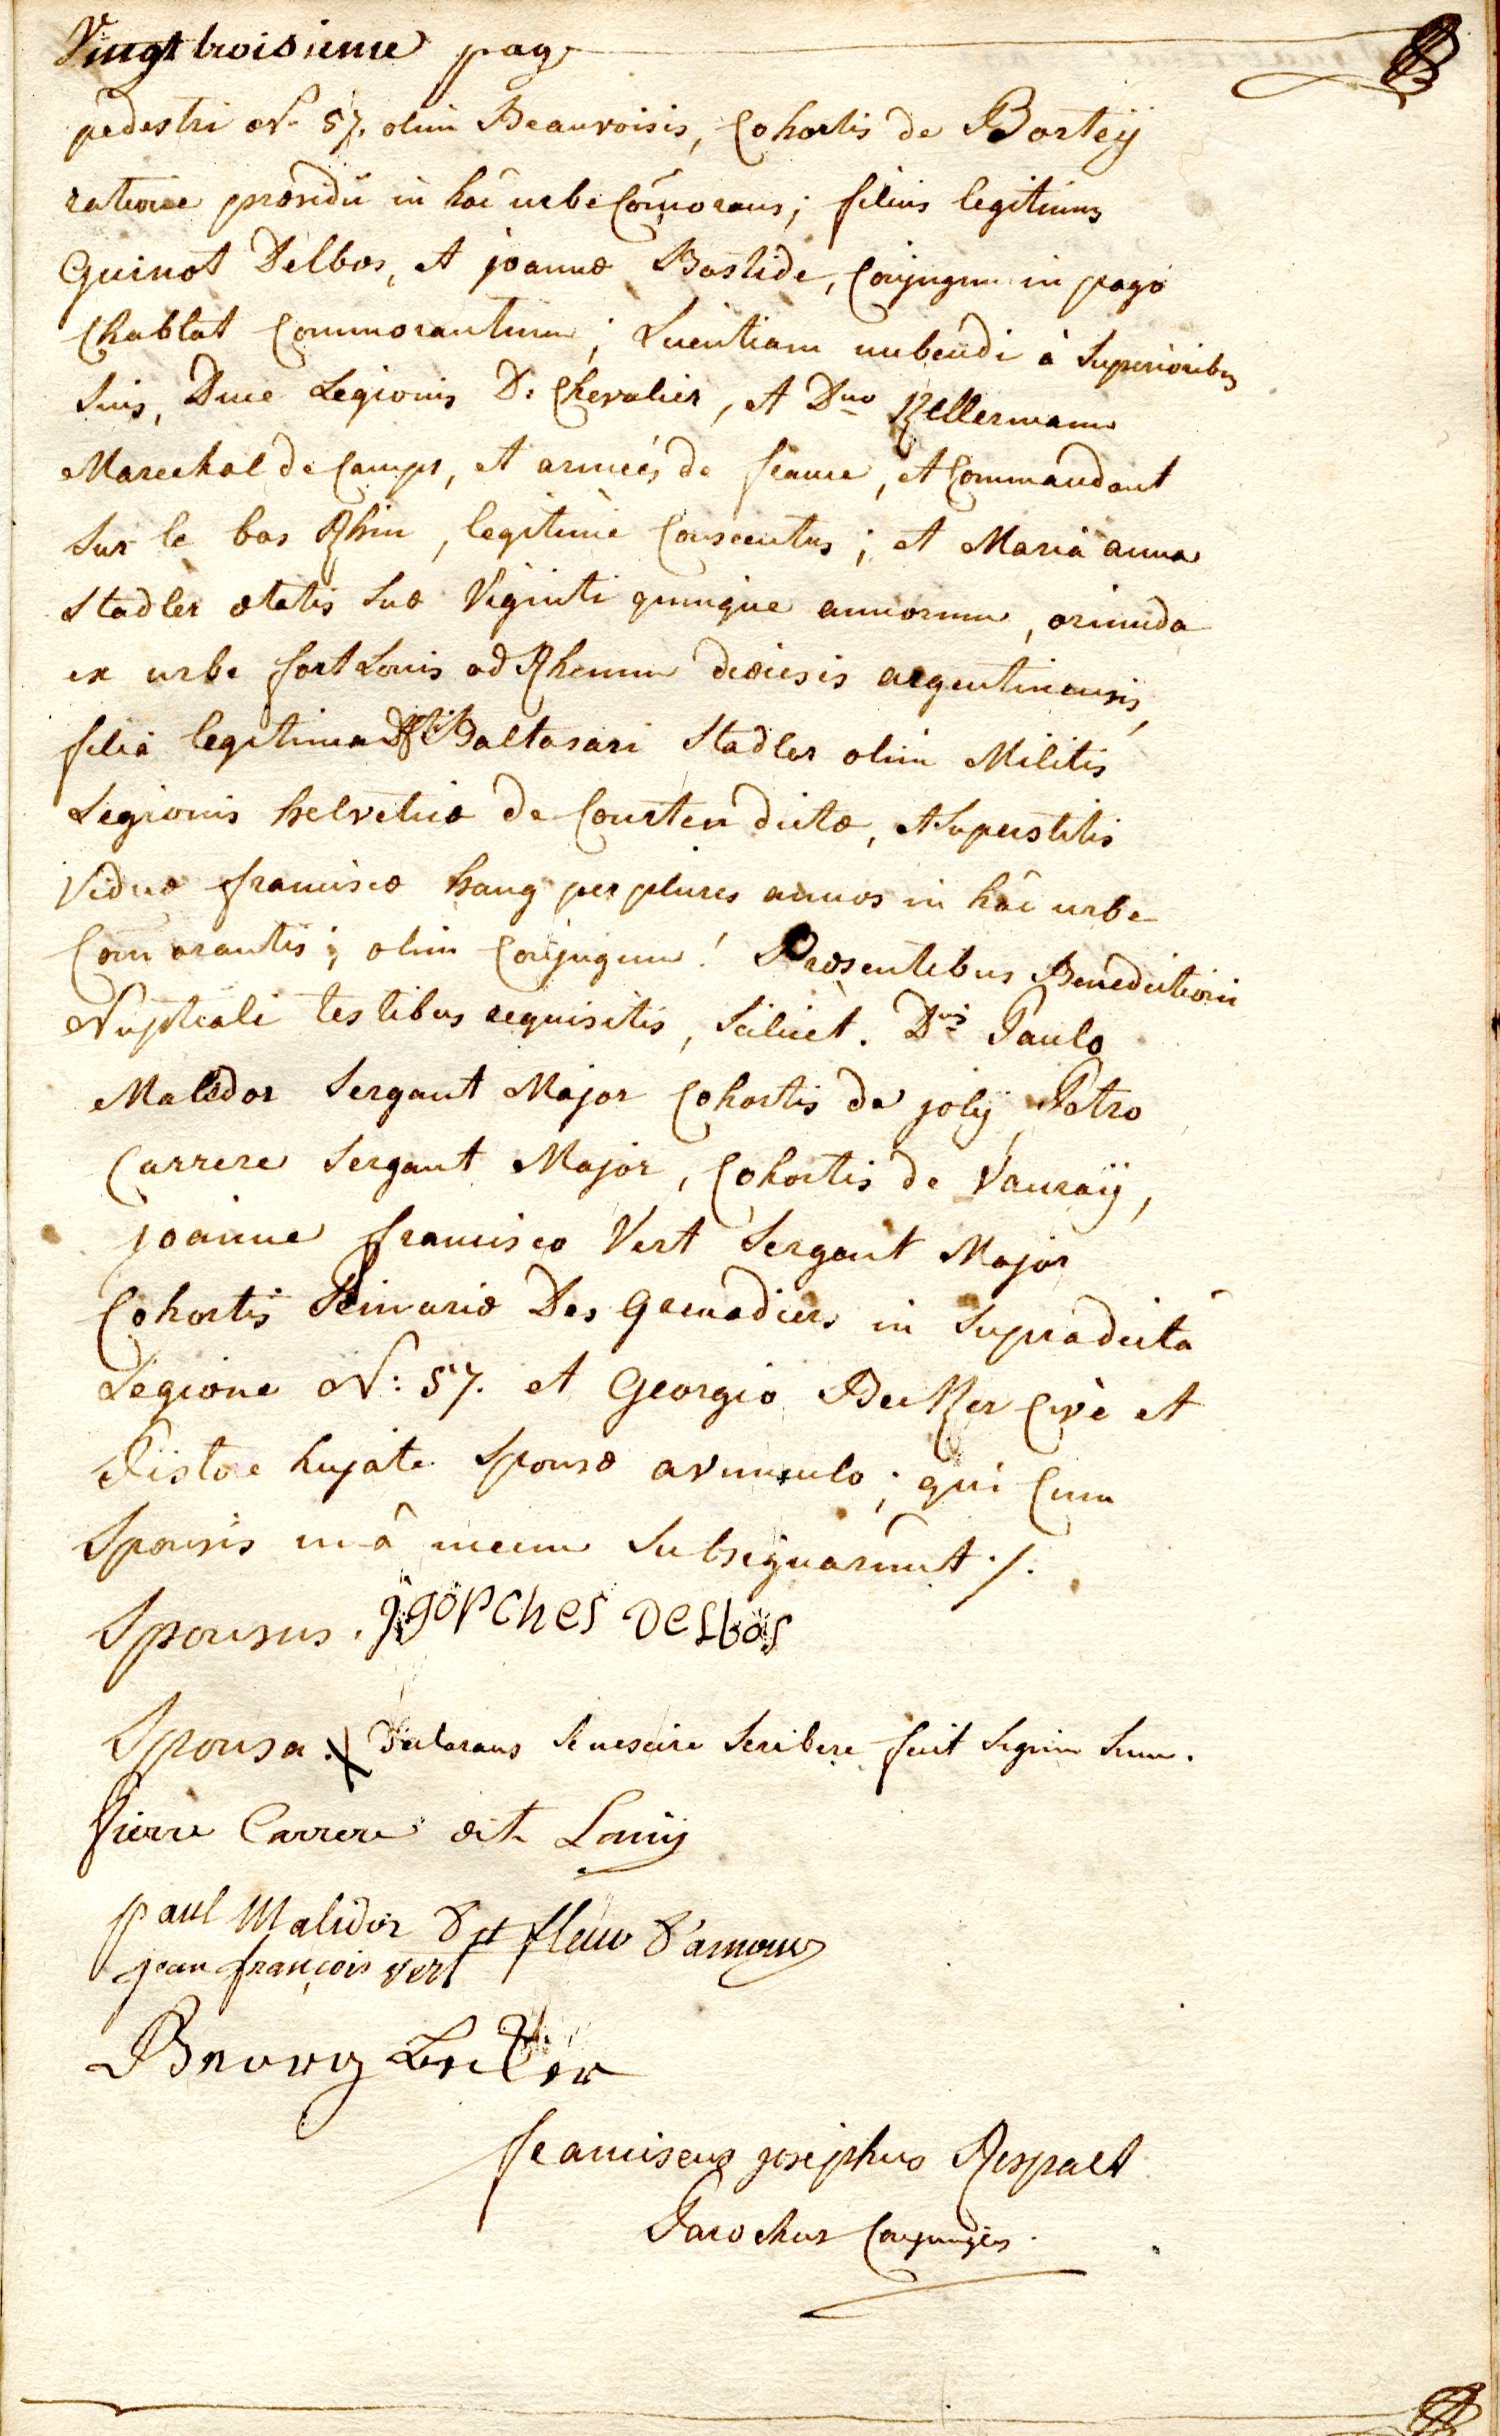 Vingt troisieme page
pedestri N° 57. olim Beauvoisis, Cohortis de Borteÿ
ratione præsidii in hac urbe Comorans; filius legitimus
Guinot Delbos, et joannæ Bastide, Conjugum in pago
Chablat Commorantium; Licentiam nubendi à Superioribus
Suis, Duce Legionis D: Chevalier, et Dno Kellermann
Marechal de Camps, et armées de france, et Commandant
Sur le bas Rhin, legitimè Consecutus; et Maria anna
Stadler ætatis Suæ Viginti quinque annorum, oriunda
ex urbe fort Louis ad Rhenum dioecesis argentinensis,
filia legitima Baltasari Stadler olim Militis
Legionis helveticæ de Courten dictæ, et Superstitis
Viduæ franciscæ hang per plures annos in hâc urbe
Comorantis; olim Conjugum! Præsentibus Benedictioni
Nuptiali testibus requisitis, Scilicet. Dnis Paulo
Malidor Sergant Major Cohortis de jolÿ, Petro
Carrere Sergant Major, Cohortis de Vauraÿ,
joanne francisco Vert Sergant Major
Cohortis Primariæ Des Grenadiers in Supradictâ
Legione N: 57. et Georgio Becker Cive et
Pistore hujate Sponsæ avunculo; qui Cum
Sponsis unà mecum Subsignarunt ./.
Sponsus. jgorches Delbos
Sponsa. X declarans Se nescire Scribere fecit Signum Suum.
pierre Carrere dit Louis
paul Malidor dit fleur d'amour
jean françois vert
Georg Becker
franciscus josephus Respalt
Parochus Conjungens.